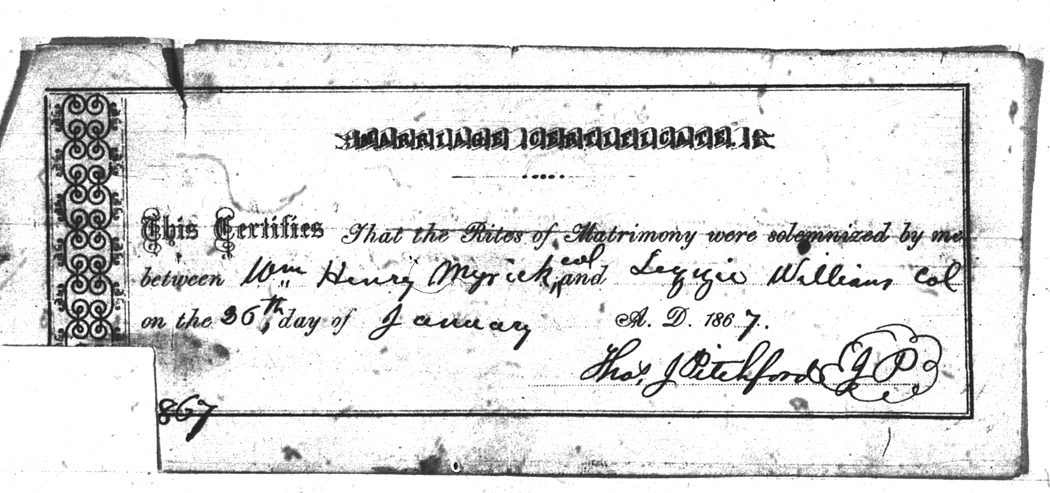 MARRIAGE CERTIFICATE.
This Certifies That the Rites of Matrimony were solemnized by me
between Wm Henry Myrick col and Lezzie Williams Col
on the 26th day of January A. D. 1867.
Thos J Pitchford JP
867